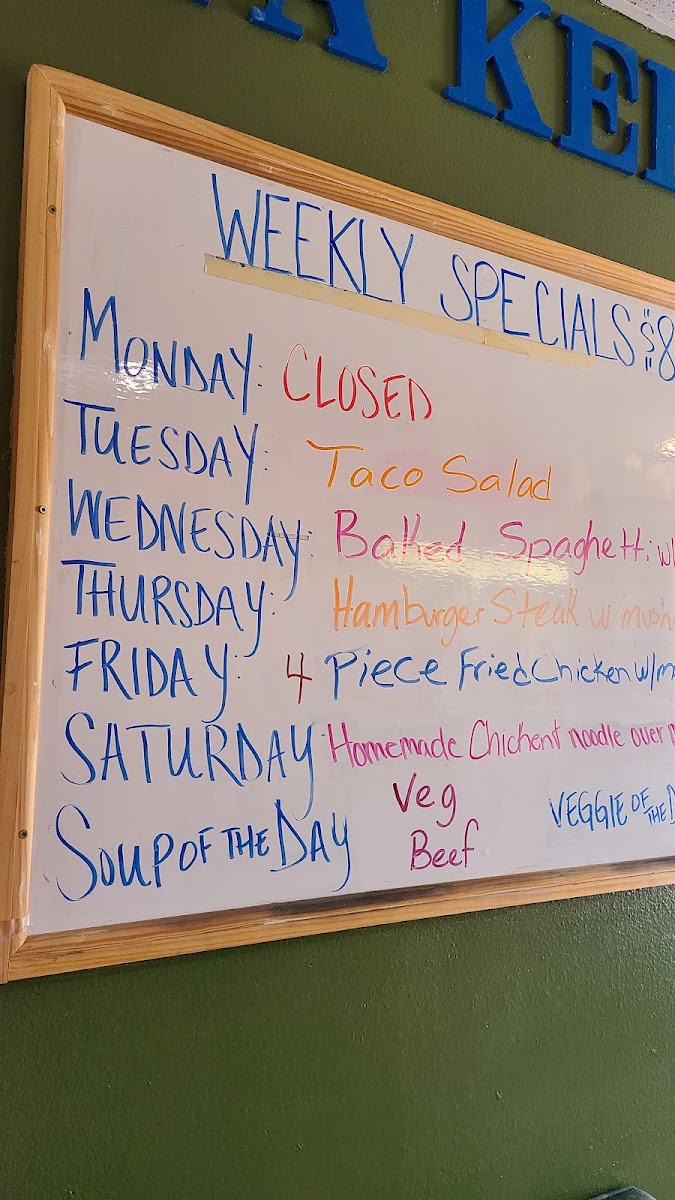 A KE
WEEKLY SPECIALS $8
MONDAY: CLOSED
TUESDAY: Taco Salad
WEDNESDAY: Baked Spaghetti w/
THURSDAY: Hamburger Steak w/mush
FRIDAY: 4 Piece Fried Chicken w/m
SATURDAY Homemade Chickent noodle over
SOUP OF THE DAY Veg Beef
VEGGIE OF THE D